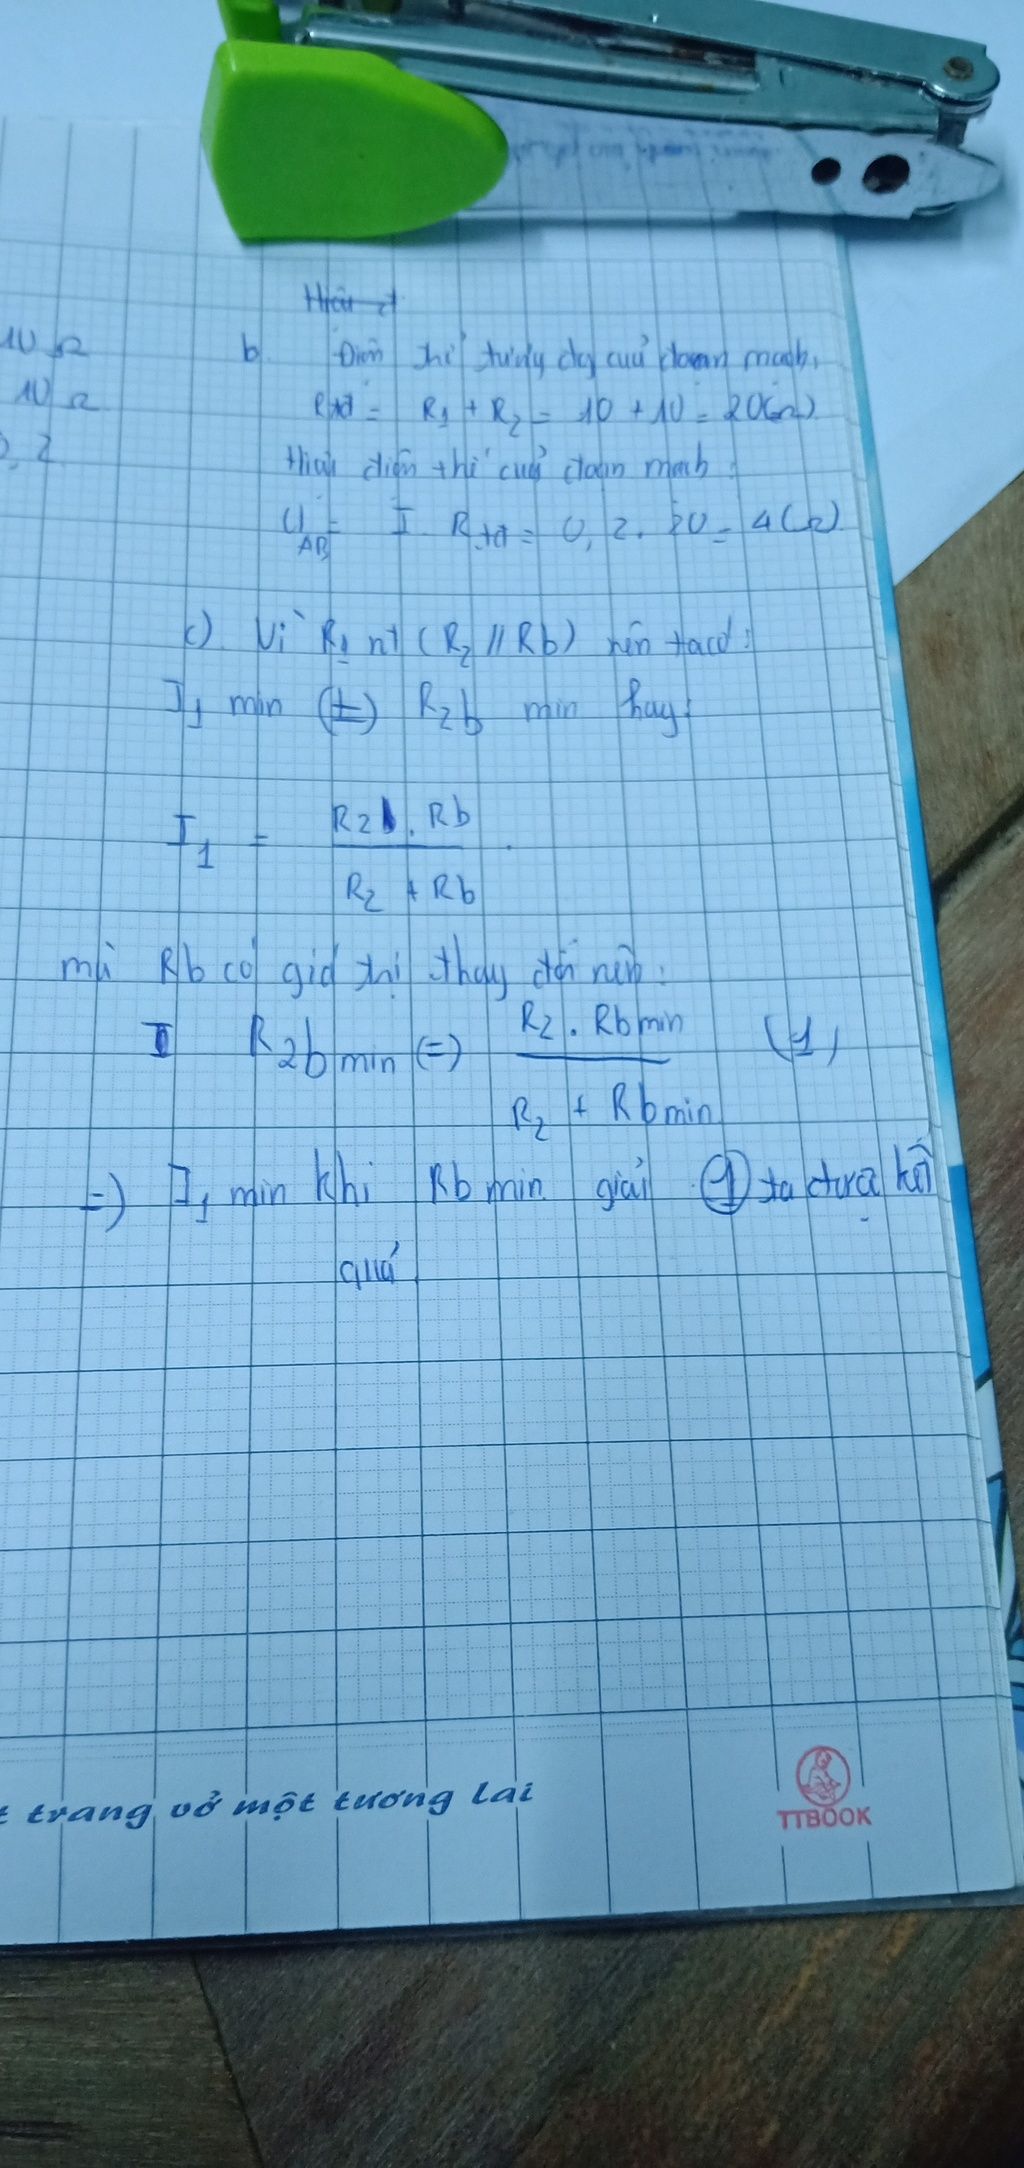 Hiệu
10 Ω
10 Ω
b. Điện thế tương của đoạn mạch,
Rtđ = R1 + R2 = 10 + 10 = 20(Ω)
điện thế của đoạn mạch:
UAB = I. Rtđ = 0,2. 20 = 4(Ω)
c) Vì R1 nt (R2 // Rb) nên ta có:
I1 min (=) R2b min hay:
I1 = R2. Rb / R2 + Rb
mà Rb có giá trị thay đổi nên:
I R2b min (=) R2. Rb min / R2 + Rb min (1)
=) I1 min khi Rb min giải (1) ta được kết
quả
t trang vở một tương lai
TTBOOK